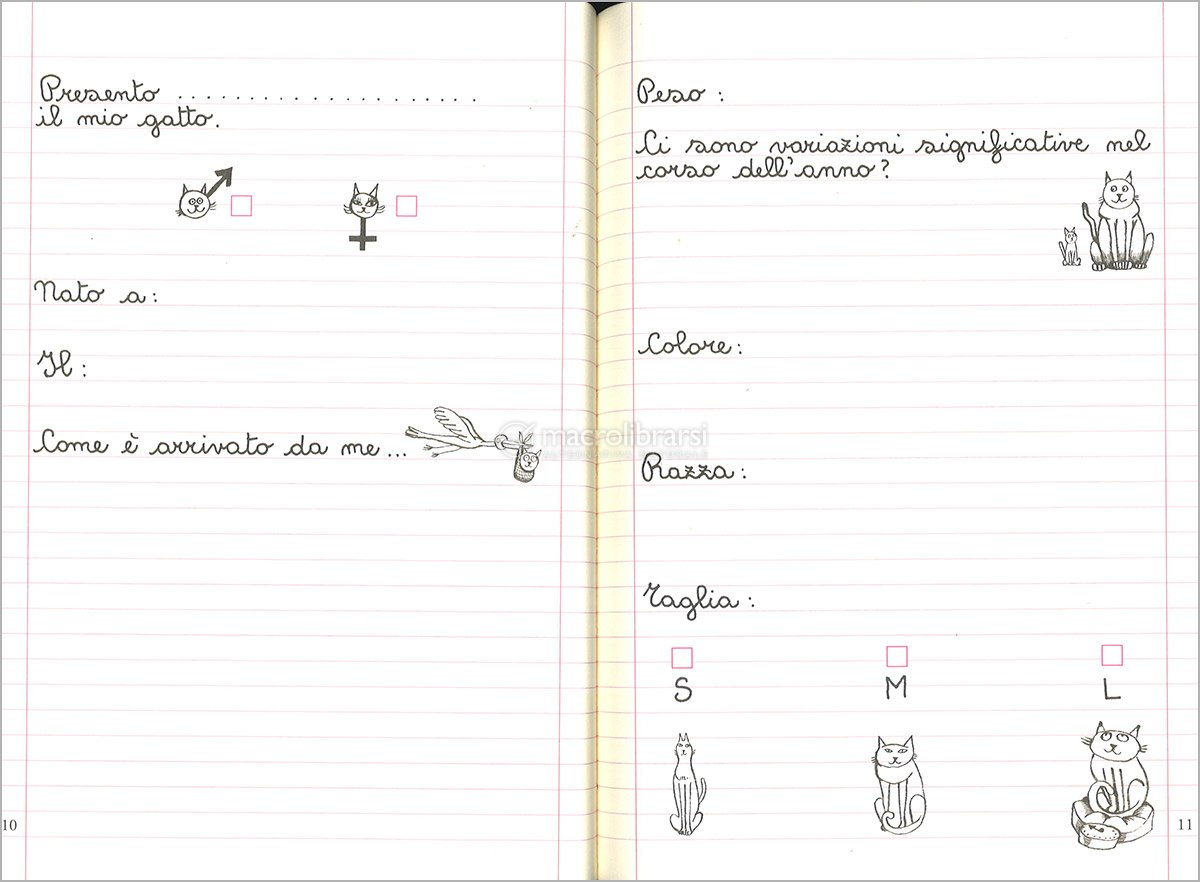 Presento .....................
il mio gatto.
Nato a:
Il:
Come è arrivato da me...
10
Peso:
Ci sono variazioni significative nel
corso dell'anno?
macrolibrarsi
Colore:
Razza:
Taglia:
S M L
11